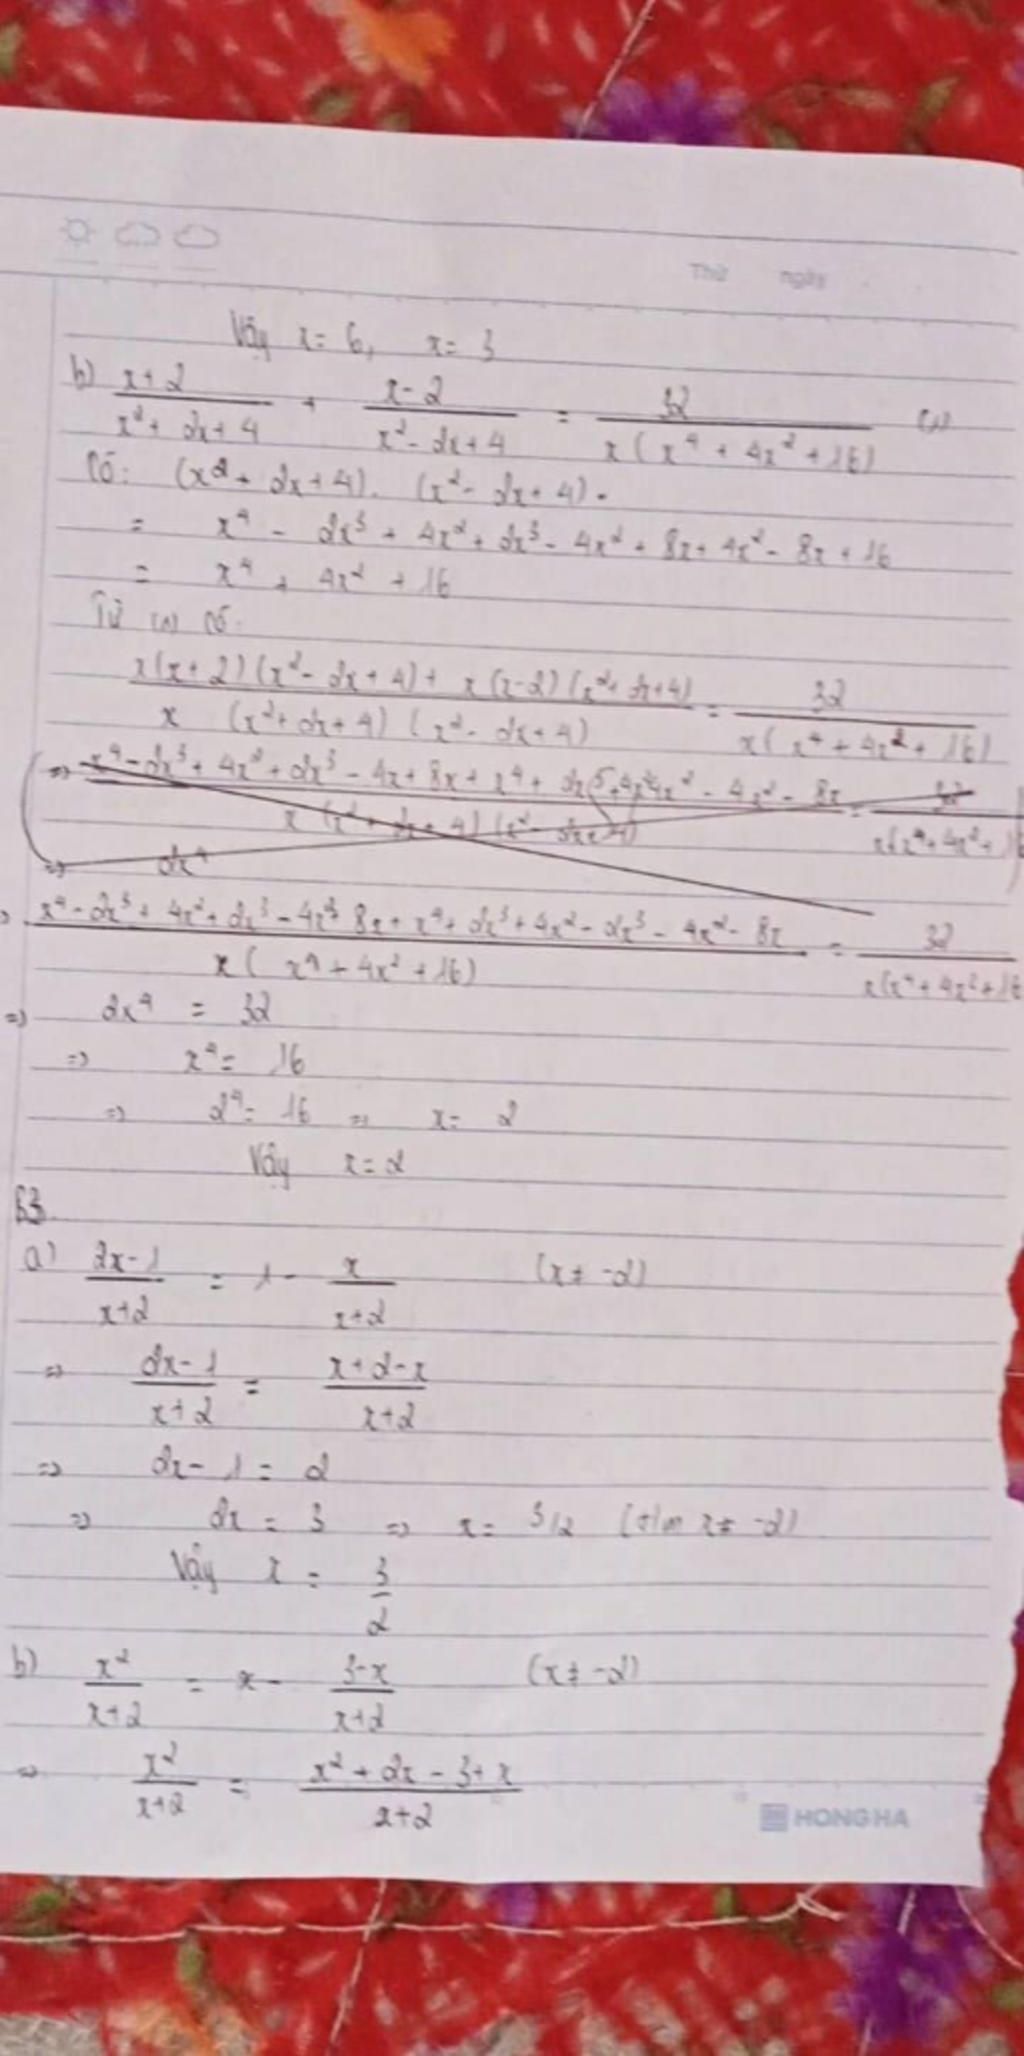 Thứ ngày
Vậy x = 6, x = 3
b) (x+2)/(x²+2x+4) + (x-2)/(x²-2x+4) = 32/(x(x⁴+4x²+16)) (1)
Có: (x²+2x+4).(x²-2x+4).
= x⁴ - 2x³ + 4x² + 2x³ - 4x² + 8x + 4x² - 8x + 16
= x⁴ + 4x² + 16
Từ (1) có:
(x(x+2)(x²-2x+4) + x(x-2)(x²+2x+4))/(x(x²+2x+4)(x²-2x+4)) = 32/(x(x⁴+4x²+16))
=> 2x⁴
=> (x⁴-2x³+4x²+2x³-4x²+8x+x⁴+2x³+4x²-2x³-4x²-8x)/(x(x⁴+4x²+16)) = 32/(x(x⁴+4x²+16
=> 2x⁴ = 32
=> x⁴ = 16
=> 2⁴ = 16 => x = 2
Vậy x = 2
B3.
a) (2x-1)/(x+2) = 1 - x/(x+2) (x ≠ -2)
=> (2x-1)/(x+2) = (x+2-x)/(x+2)
=> 2x - 1 = 2
=> 2x = 3 => x = 3/2 (t/m x ≠ -2)
Vậy x = 3/2
b) x²/(x+2) = x - (3-x)/(x+2) (x ≠ -2)
=> x²/(x+2) = (x²+2x-3+x)/(x+2)
HONG HA